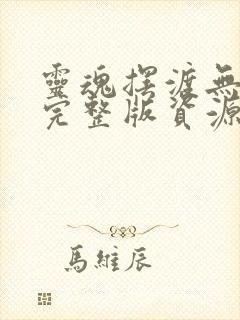 靈魂擺渡無
完整版資源
馬維辰